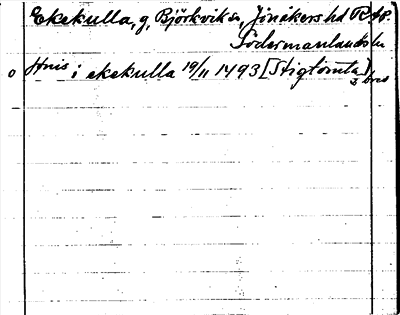 Ekekulla, g, Björkviks, Jönåkers hd
Södermanlands
o Jönis i ekekulla 19/11 1493 [Stigtomta]
3 bref